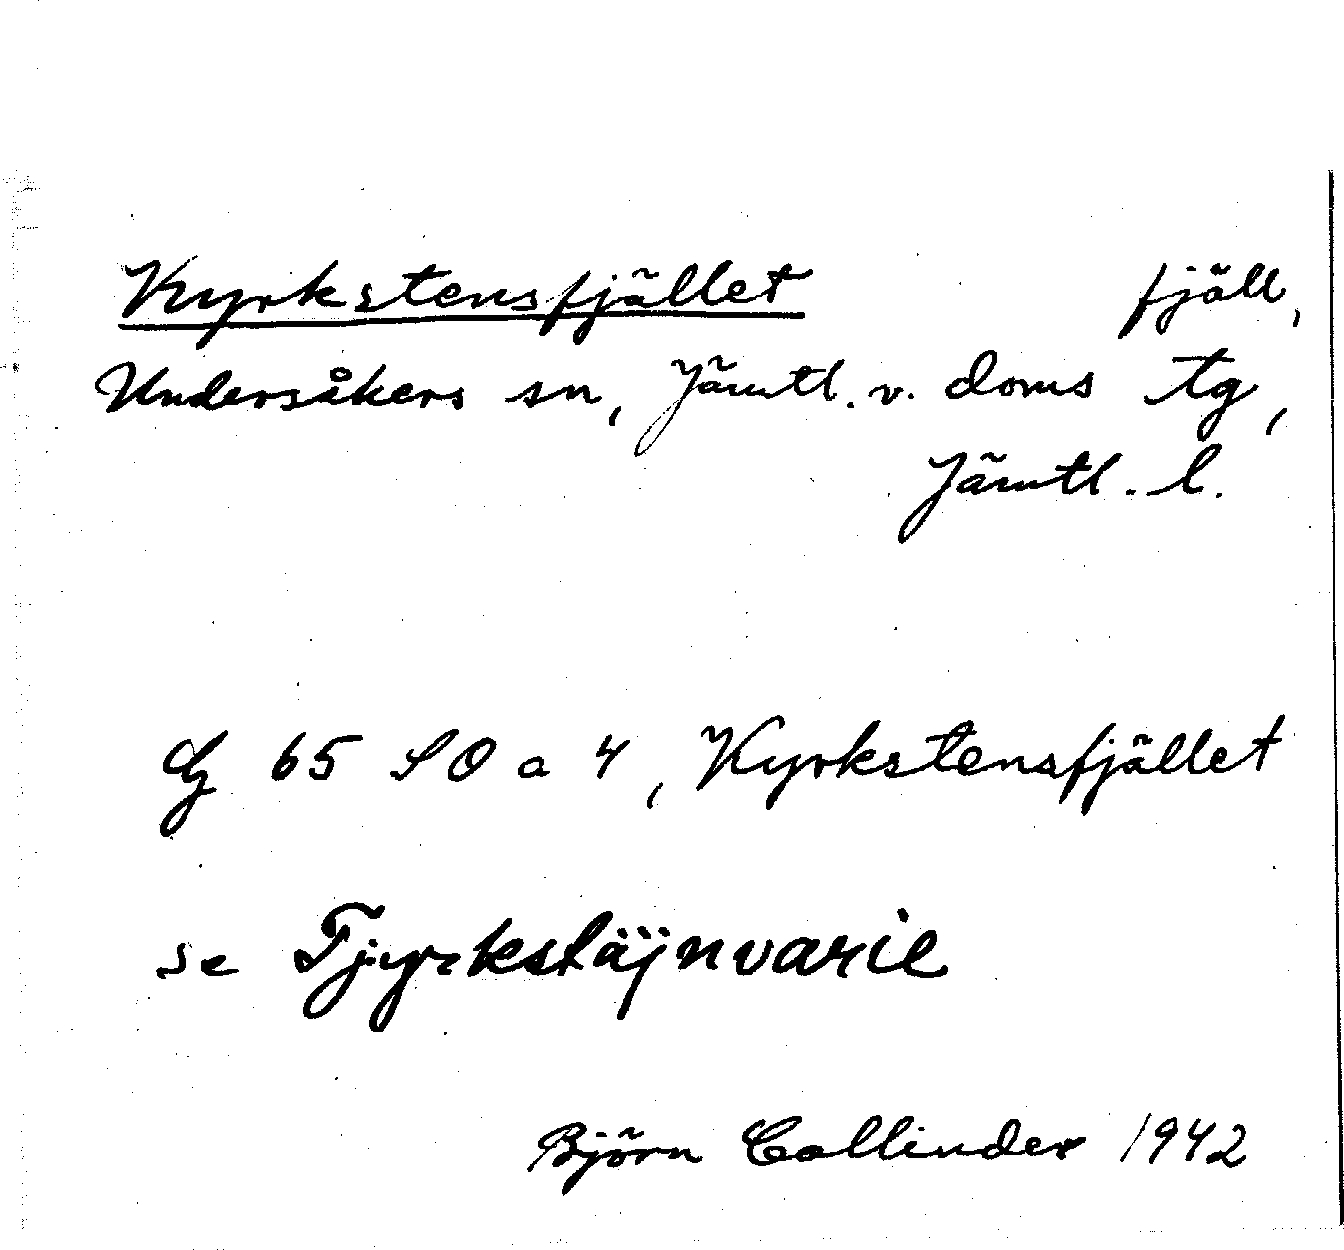 Kyrkstensfjället fjäll,
Undersåkers sn, Jämtl. v. doms tg,
Jämtl. l.
G 65 SO a 4, Kyrkstensfjället
se Tjyrkstäjnvarie
Björn Collinder 1942